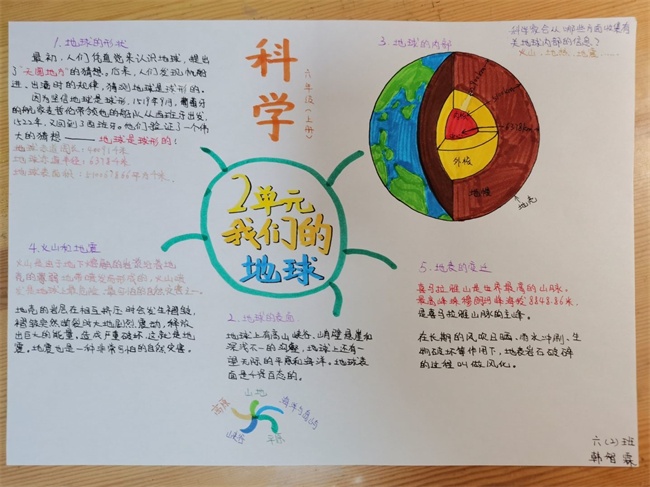 1. 地球的形状
最初,人们凭直觉来认识地球,提出
了"天圆地方"的猜想。后来,人们发现帆船
进、出港时的规律,猜测地球是球形的。
因为坚信地球是球形,1519年9月,葡萄牙
的航海家麦哲伦带领他的船队从西班牙出发,
1522年,又回到了西班牙。他们验证了一个伟
大的猜想——地球是球形的!
地球赤道周长:
地球赤道半径:
地球表面积:
科学
六年级(上册)
3. 地球的内部
科学家会从哪些方面收集有
关地球内部的信息?
火山、地热、地震……
外核
地幔
地壳
2单元
我们的
地球
4. 火山和地震
火山是由于地下熔融的岩浆沿着地
壳的薄弱地带喷发而形成的,火山喷
发是地球上最危险、最恐怖的自然灾害之一。
地壳的岩层在相互挤压时会发生褶皱,
褶皱突然断裂则大地剧烈震动,释放
出巨大的能量。造成严重破坏,这就是地
震。地震也是一种非常可怕的自然灾害。
2. 地球的表面
地球上有高山峡谷、峭壁悬崖和
深浅不一的沟壑,地球上还有一
望无际的平原和海洋。地球表
面是千姿百态的。
山地
峡谷
平原
5. 地表的变迁
喜马拉雅山是世界最高的山脉,
最高峰珠穆朗玛峰海拔8848.86米,
是喜马拉雅山脉的主峰。
在长期的风吹日晒、雨水冲刷、生
物破坏等作用下,地表岩石破碎
的过程叫做风化。
六(2)班
韩智霖